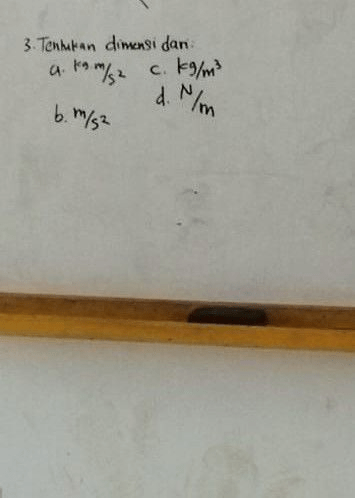 3. Tentukan dimensi dari:
a. kg.m/s² c. kg/m³
d. N/m
b. m/s²